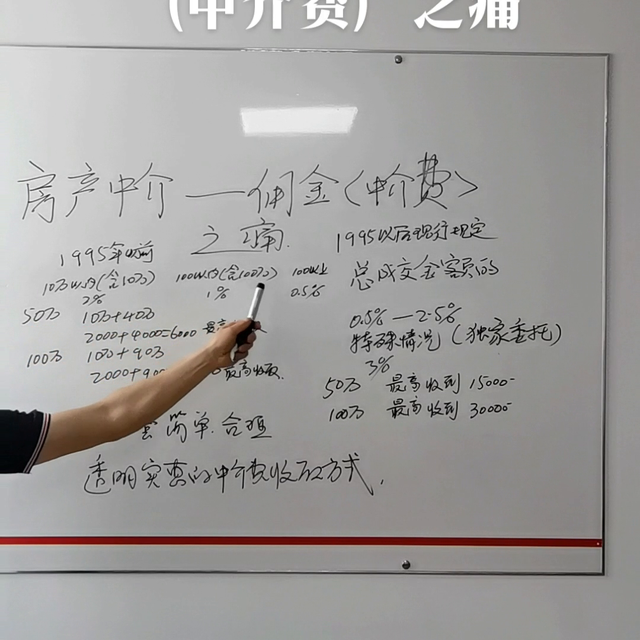 (中介费) 之痛
房产中介——佣金(中介费)
之痛.
1995年以前
10万以内(含10万) 100W以内(含100万) 100W以上
2% 1% 0.5%
50万 10万+40万
2000+4000=6000 最高
100万 10万+90万
2000+900 最高收取.
简单.合理
透明实惠的中介费收取方式.
1995以后现行规定
总成交金额的
0.5%—2.5%
特殊情况(独家委托)
3%
50万 最高收到 15000-
100万 最高收到 30000-